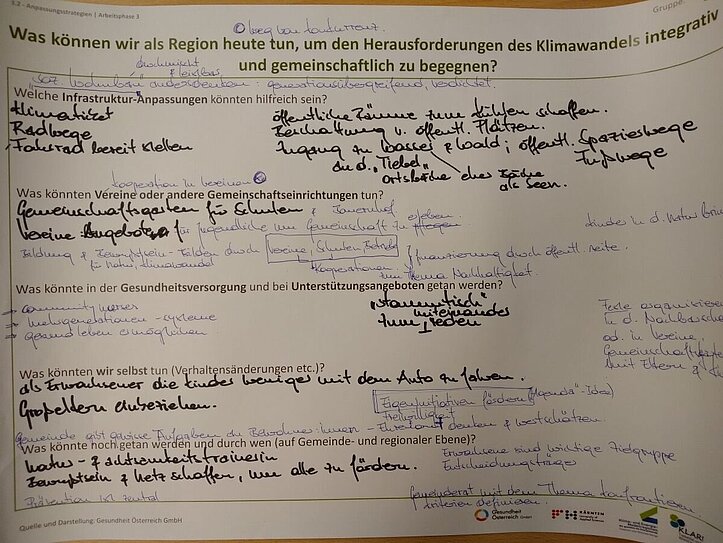 3.2 - Anpassungsstrategien | Arbeitsphase 3
Gruppe:
weg von Konkurrenz.
Was können wir als Region heute tun, um den Herausforderungen des Klimawandels integrativ
und gemeinschaftlich zu begegnen?
& leistbar
andersdenken: generationsübergreifend, verdichtet.
Welche Infrastruktur-Anpassungen könnten hilfreich sein?
Klimaticket
Radwege
Fahrrad bereit stellen
öffentliche Räume zum Kühlen schaffen.
Beschattung v. öffentl. Plätzen.
Zugang zu Wasser & Wald; öffentl. Spazierwege
an d. "Tiebel"
Fußwege
Ortsbäche eher Bäche
als Seen.
Kooperation in Vereinen
Was könnten Vereine oder andere Gemeinschaftseinrichtungen tun?
Gemeinschaftsgarten für Schulen &
erleben.
Vereine Angebote für Jugendliche um Gemeinschaft zu pflegen
Kinder in d. Natur
Bildung & Bewusstsein - Bilden durch Vereine, Schulen, Betriebe
für Natur, Klimawandel
Finanzierung durch öffentl. Seite.
Kooperationen
zum Thema Nachhaltigkeit.
Was könnte in der Gesundheitsversorgung und bei Unterstützungsangeboten getan werden?
"Stammtisch"
miteinander
zum reden
Community nurses
Mehrgenerationen - systeme
gesund leben ermöglichen
Feste organisieren
in d. Nachbarschaft
od. in Vereine,
mit Eltern &
Was könnten wir selbst tun (Verhaltensänderungen etc.)?
als Erwachsener die Kinder weniger mit dem Auto zu fahren.
Großeltern einbeziehen.
Eigeninitiativen fördern ("Agenda"-Idee)
Freiwilligkeit
Gemeinde gibt gewisse Aufgaben an Bewohner:innen - Ehrenamt denken & wertschätzen.
Was könnte noch getan werden und durch wen (auf Gemeinde- und regionaler Ebene)?
Natur- & Achtsamkeitstrainerin
Bewusstsein & Netz schaffen, um alle zu fördern.
Erwachsene sind wichtige Zielgruppe
Entscheidungsträger
Prävention ist zentral
Gemeinderat mit dem Thema konfrontieren
Kriterien definieren.
Quelle und Darstellung: Gesundheit Österreich GmbH
Gesundheit
Österreich GmbH
KÄRNTEN
KLAR!